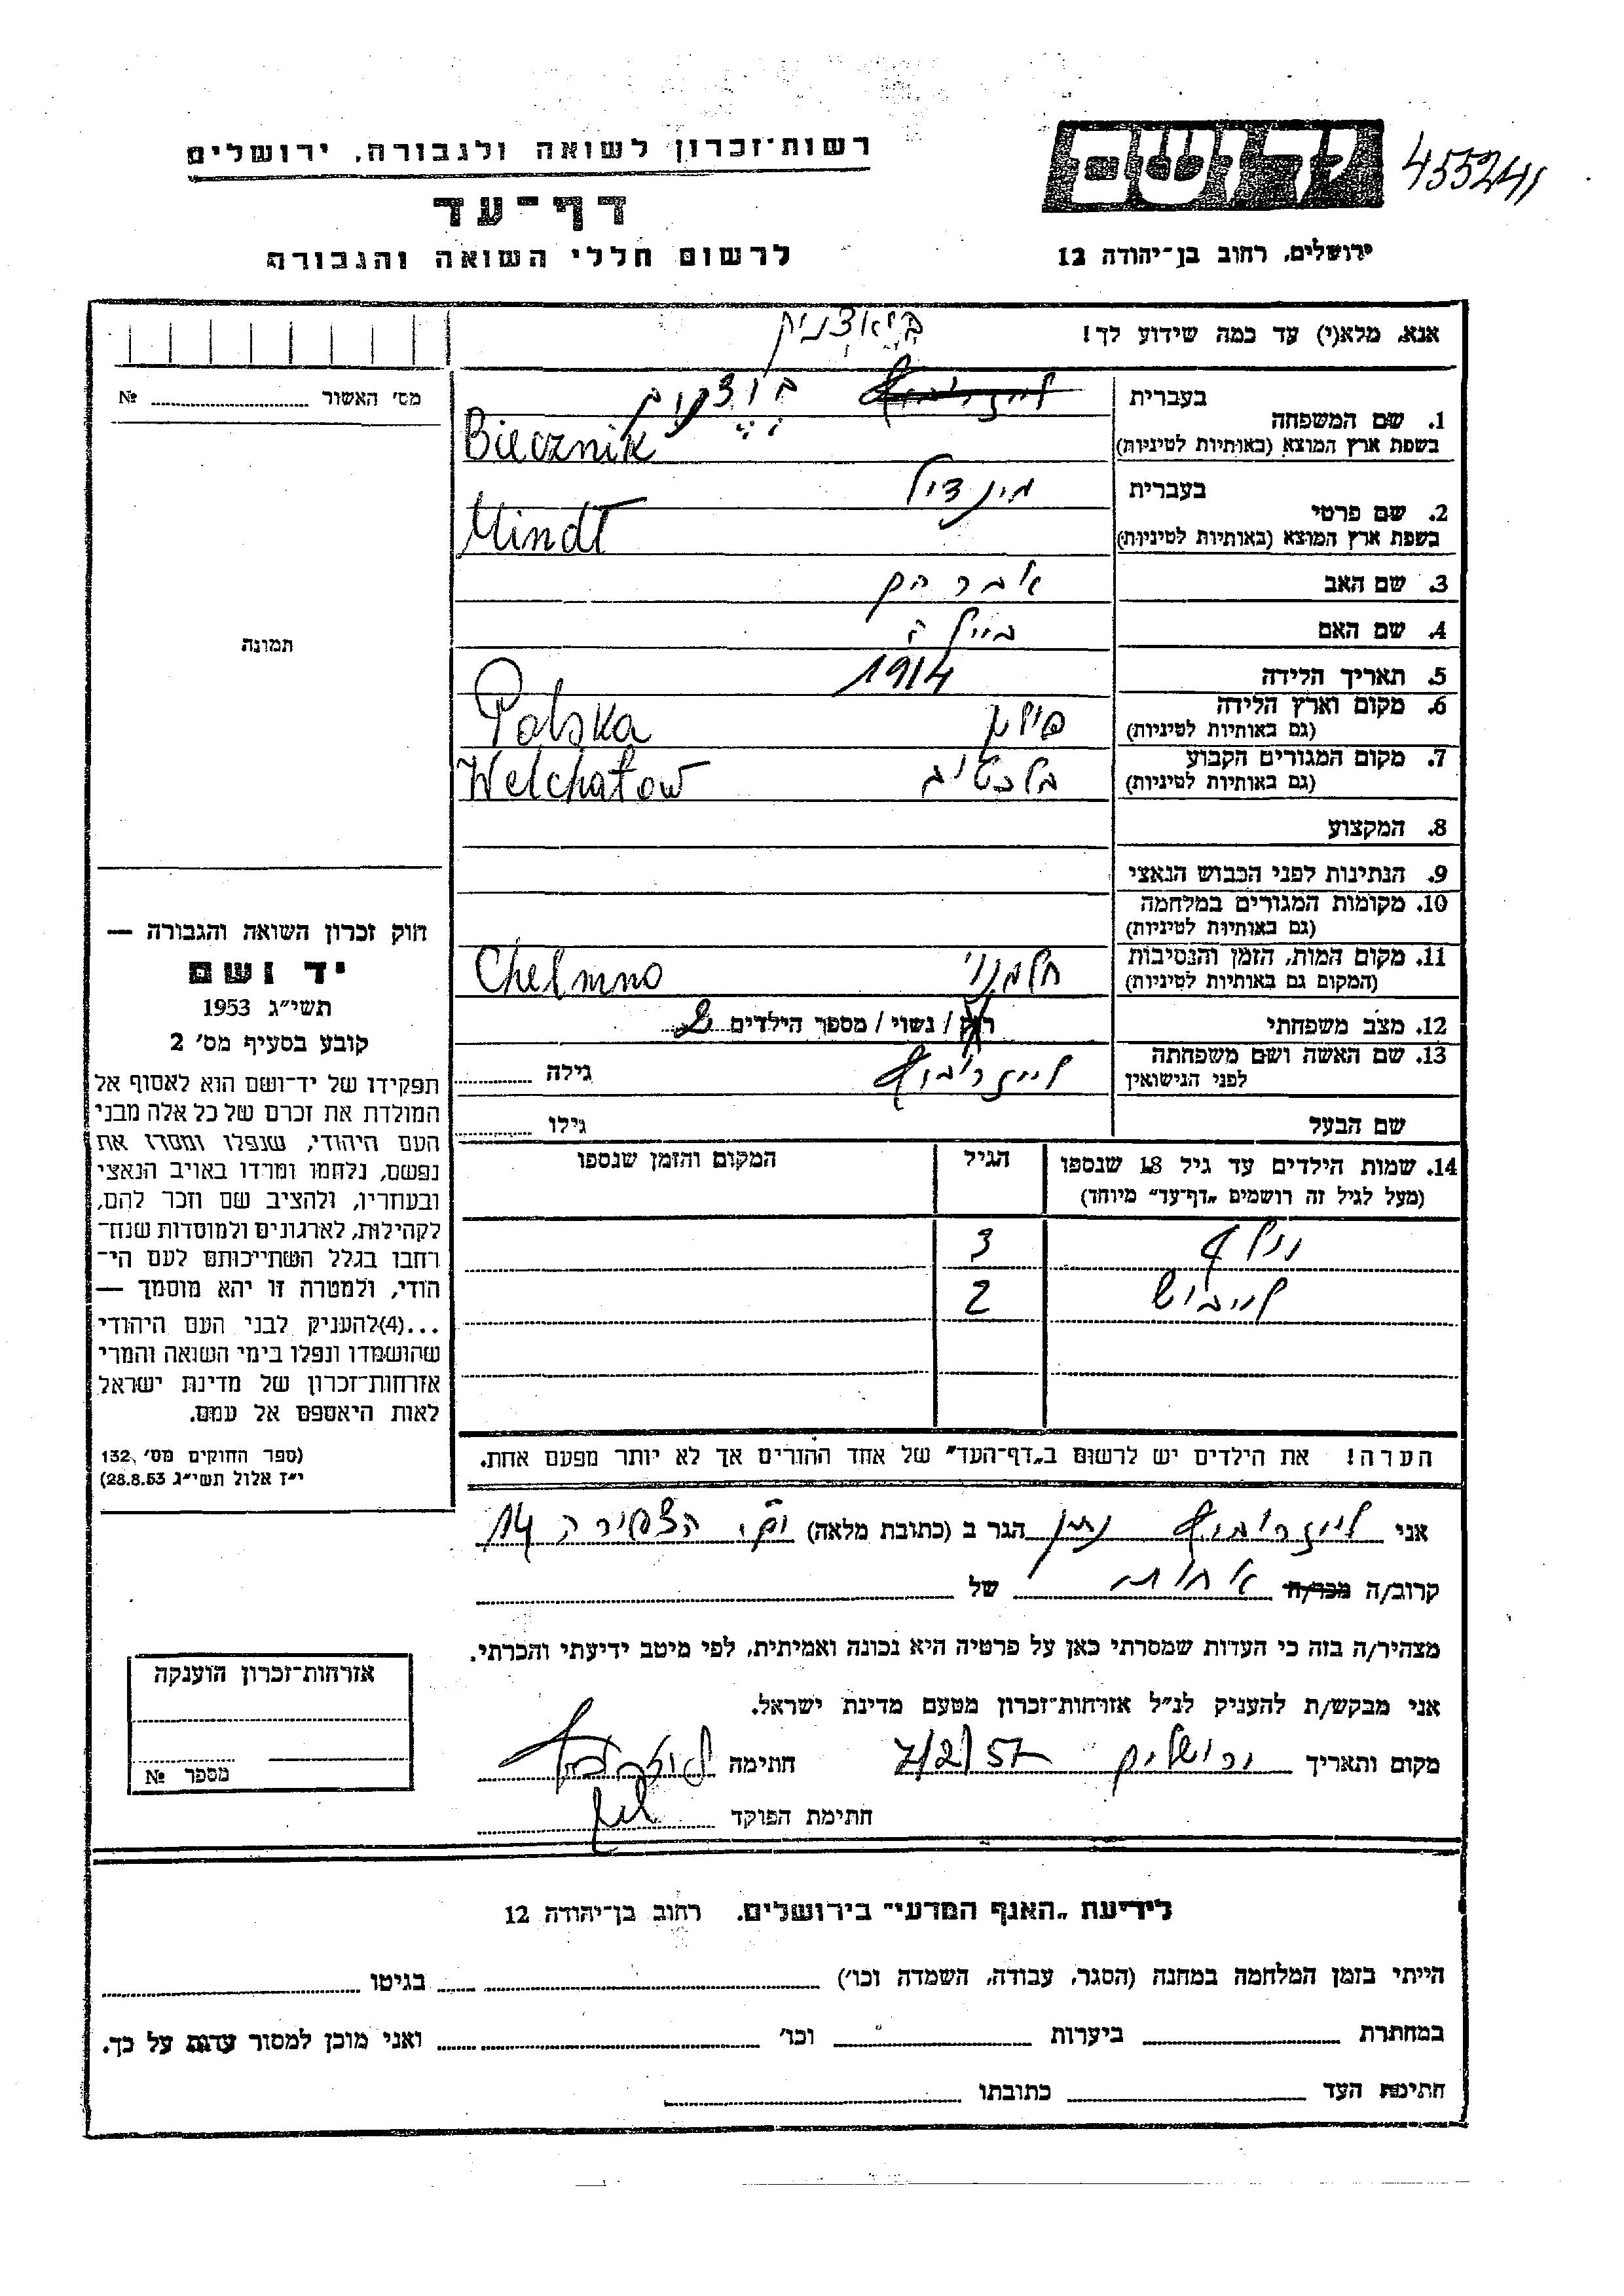 רשות־זכרון לשואה ולגבורה, ירושלים
דף־עד
לרשום חללי השואה והגבורה
ידושם
455241
ירושלים, רחוב בן־יהודה 12
אנא, מלא(י) עד כמה שידוע לך!
ביאצניק
מס' האשור № 
1. שם המשפחה
בעברית לייזרוביץ
בשפת ארץ המוצא (באותיות לטיניות) Biecznik
2. שם פרטי
בעברית מינדיל
בשפת ארץ המוצא (באותיות לטיניות) Mindl
3. שם האב אברהם
4. שם האם ביילה
תמונה
5. תאריך הלידה 1914
6. מקום וארץ הלידה פולין Polska
(גם באותיות לטיניות)
7. מקום המגורים הקבוע Welchatow
(גם באותיות לטיניות)
8. המקצוע
9. הנתינות לפני הכבוש הנאצי
10. מקומות המגורים במלחמה
(גם באותיות לטיניות)
11. מקום המות, הזמן והנסיבות חלמנו Chelmno
(המקום גם באותיות לטיניות)
12. מצב משפחתי רווק / נשוי / מספר הילדים 2
13. שם האשה ושם משפחתה לייזרוביץ גילה
לפני הנישואין
שם הבעל גילו
14. שמות הילדים עד גיל 18 שנספו הגיל המקום והזמן שנספו
(מעל לגיל זה רושמים „דף־עד" מיוחד)
3
לייבוש 2
הערה! את הילדים יש לרשום ב„דף־העד" של אחד ההורים אך לא יותר מפעם אחת.
חוק זכרון השואה והגבורה —
יד ושם
תשי"ג 1953
קובע בסעיף מס' 2
תפקידו של יד־ושם הוא לאסוף אל
המולדת את זכרם של כל אלה מבני
העם היהודי, שנפלו ומסרו את
נפשם, נלחמו ומרדו באויב הנאצי
ובעוזריו, ולהציב שם וזכר להם,
לקהילות, לארגונים ולמוסדות שנח־
רבו בגלל השתייכותם לעם הי־
הודי, ולמטרה זו יהא מוסמך —
...(4)להעניק לבני העם היהודי
שהושמדו ונפלו בימי השואה והמרי
אזרחות־זכרון של מדינת ישראל
לאות היאספם אל עמם.
(ספר החוקים מס' 132,
י"ז אלול תשי"ג 28.8.53)
אני לייזרוביץ נתן הגר ב (כתובת מלאה) הצפירה 14
קרוב/ה מכר/ה אחות של
מצהיר/ה בזה כי העדות שמסרתי כאן על פרטיה היא נכונה ואמיתית, לפי מיטב ידיעתי והכרתי.
אני מבקש/ת להעניק לנ"ל אזרחות־זכרון מטעם מדינת ישראל.
מקום ותאריך ירושלים 7/2/57 חתימה
חתימת הפוקד
אזרחות־זכרון הוענקה
מספר №
לידיעת „האגף המדעי" בירושלים, רחוב בן־יהודה 12
הייתי בזמן המלחמה במחנה (הסגר, עבודה, השמדה וכו') בגיטו
במחתרת ביערות וכו' ואני מוכן למסור עדות על כך.
חתימת העד כתובתו